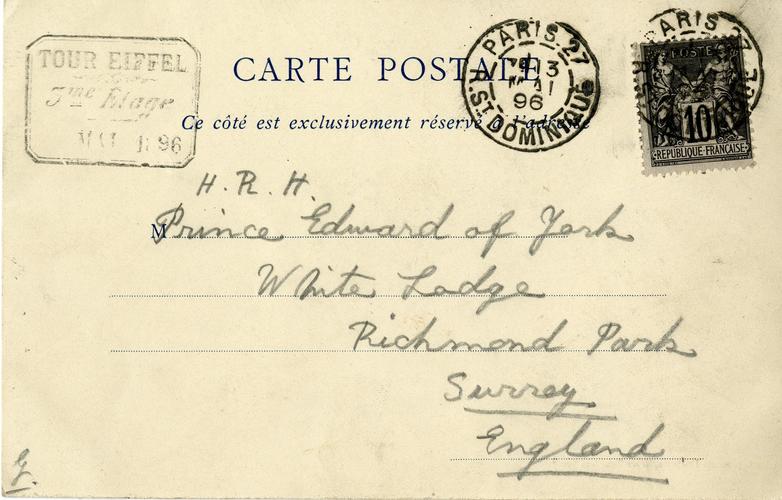 TOUR EIFFEL
3me Etage
MAI 1896
CARTE POSTALE
PARIS 27
13
MAI
96
R. ST DOMINIQUE
PARIS 27
POSTE
10
REPUBLIQUE FRANÇAISE
Ce côté est exclusivement réservé à l'adresse
H. R. H.
M Prince Edward of York
White Lodge
Richmond Park
Surrey
England
G.